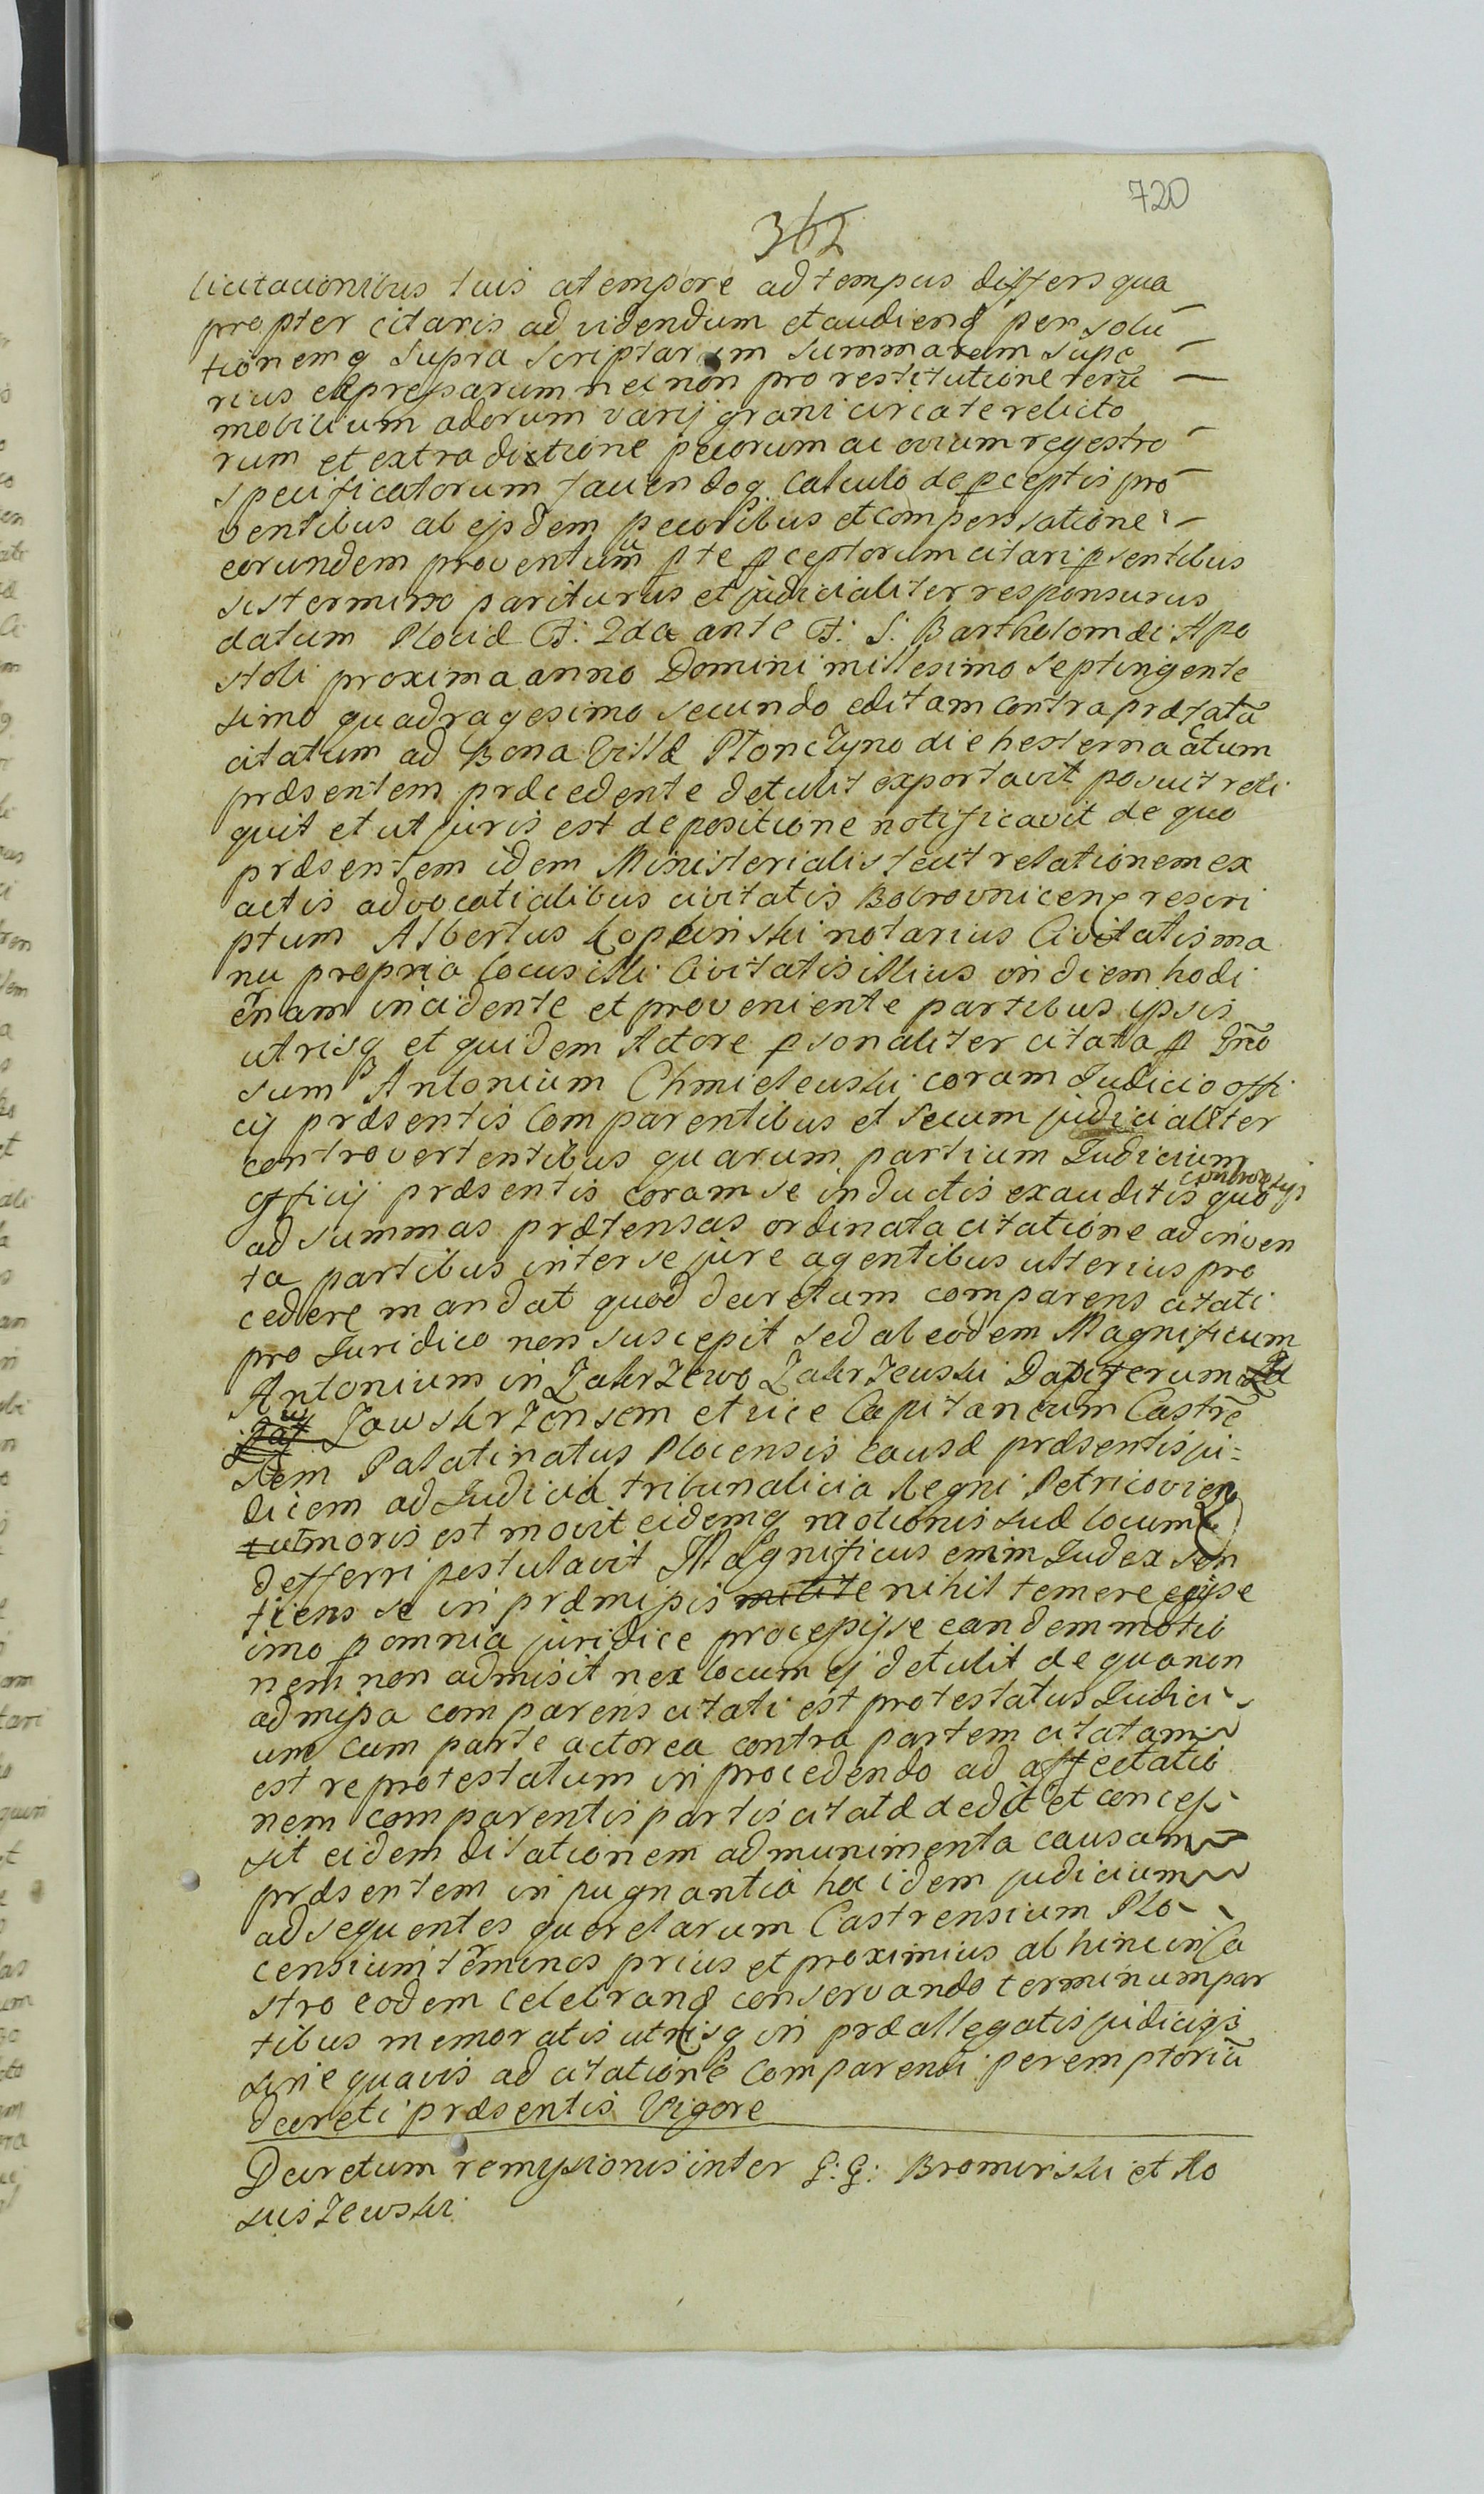 720
362
licitationibus tuis a tempore ad tempus differs qua
propter citaris ad videndum et audiend persolu
tionemq supra scriptarum summarum supe
rius expressarum nec non pro restitutione rerũ
mobilium adorum varij grani circa te relicto
rum et extradictione pecorum ac ovium regestro
specificatorum faciendoq calculo de pceptis pro
ventibus ab ejsdem pecoribus et compensatione
eorundem proventuum p te pceptorum citari psentibus
sis termino pariturus et judicialiter responsurus
datum Plociæ F: 2da ante F: S: Bartholomæi Apo
stoli proxima anno Domini millesimo septingente
simo quadragesimo secundo editam contra præfatã
citatum ad Bona Villæ Płonczyno die hesterna actum
præsentem præcedente detulit exportavit posuit reli
quit et ut juris est de positione notificavit de quo
præsentem idem Ministerialis fecit relationem ex
actis advocatialibus civitatis Bobrovnicen rescri
ptum Albertus Kopciński notarius Civitatis ma
nu propria locus illi Civitatis illius in diem hodi
ernam incidente et proveniente partibus ipsis
utrisq et quidem Actore psonaliter citata p Gño
sum Antonium Chmieleuski coram Judicio offi
cij præsentis comparentibus et secum judicialiter
controvertentibus quarum partium Judicium
controversijs
officij præsentis coram se inductis exauditis quo
ad summas prætensas ordinata citatione adinven
ta partibus inter se jure agentibus ulterius pro
cedere mandat quod decretum comparens citati
pro Juridico non suscepit sed ab eodem Magnificum
Antonium in Zakrzewo Zakrzeuski Dapiferum
Zawskrzensem et vice Capitaneum Castrẽ
sem Palatinatus Plocensis causæ præsentis ju=
dicem ad Judicia tribunalicia Regni Petricovien
ut moris est movit eidemq motionis suæ locum
defferri postulavit Magnificus enim Judex sen
tiens se in præmissis nihil temere egisse
imo p omnia juridice processisse eandem motio
nem non admisit nex locum ej detulit de qua non
admissa comparens citati est protestatus Judici
um cum parte actorea contra partem citatam
est reprotestatum in procedendo ad affectatio
nem comparentis partis citatæ dedit et conces
sit eidem dilationem ad munimenta causam
præsentem in pugnantia hoc idem judicium
ad sequentes querelarum Castrensium Plo
censium terminos prius et proximius ab hinc in Ca
stro eodem celebrand conservando terminum par
tibus memoratis utrisq in præallegatis judicijs
sine quavis ad citatione comparendi peremptoriũ
decreti præsentis Vigore
Decretum remissionis inter G: G: Bromirski et Ro
suszewski